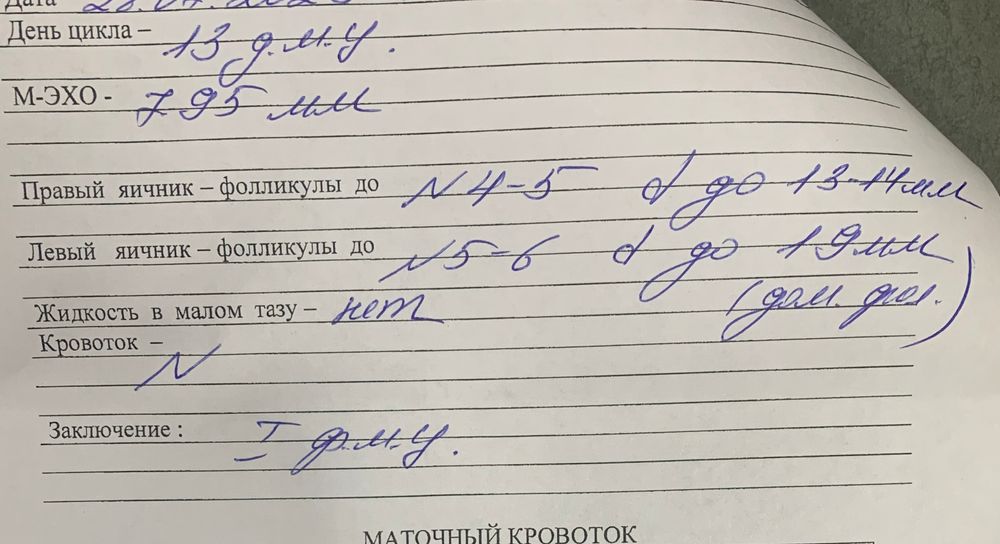 Дата
День цикла – 13 д.м.ц.
М-ЭХО - 7 95 мм
Правый яичник – фолликулы до N 4-5 d до 13-14 мм
Левый яичник – фолликулы до N 5-6 d до 19 мм
(дом. фол.)
Жидкость в малом тазу – нет
Кровоток –
N
Заключение : I ф.м.ц.
МАТОЧНЫЙ КРОВОТОК